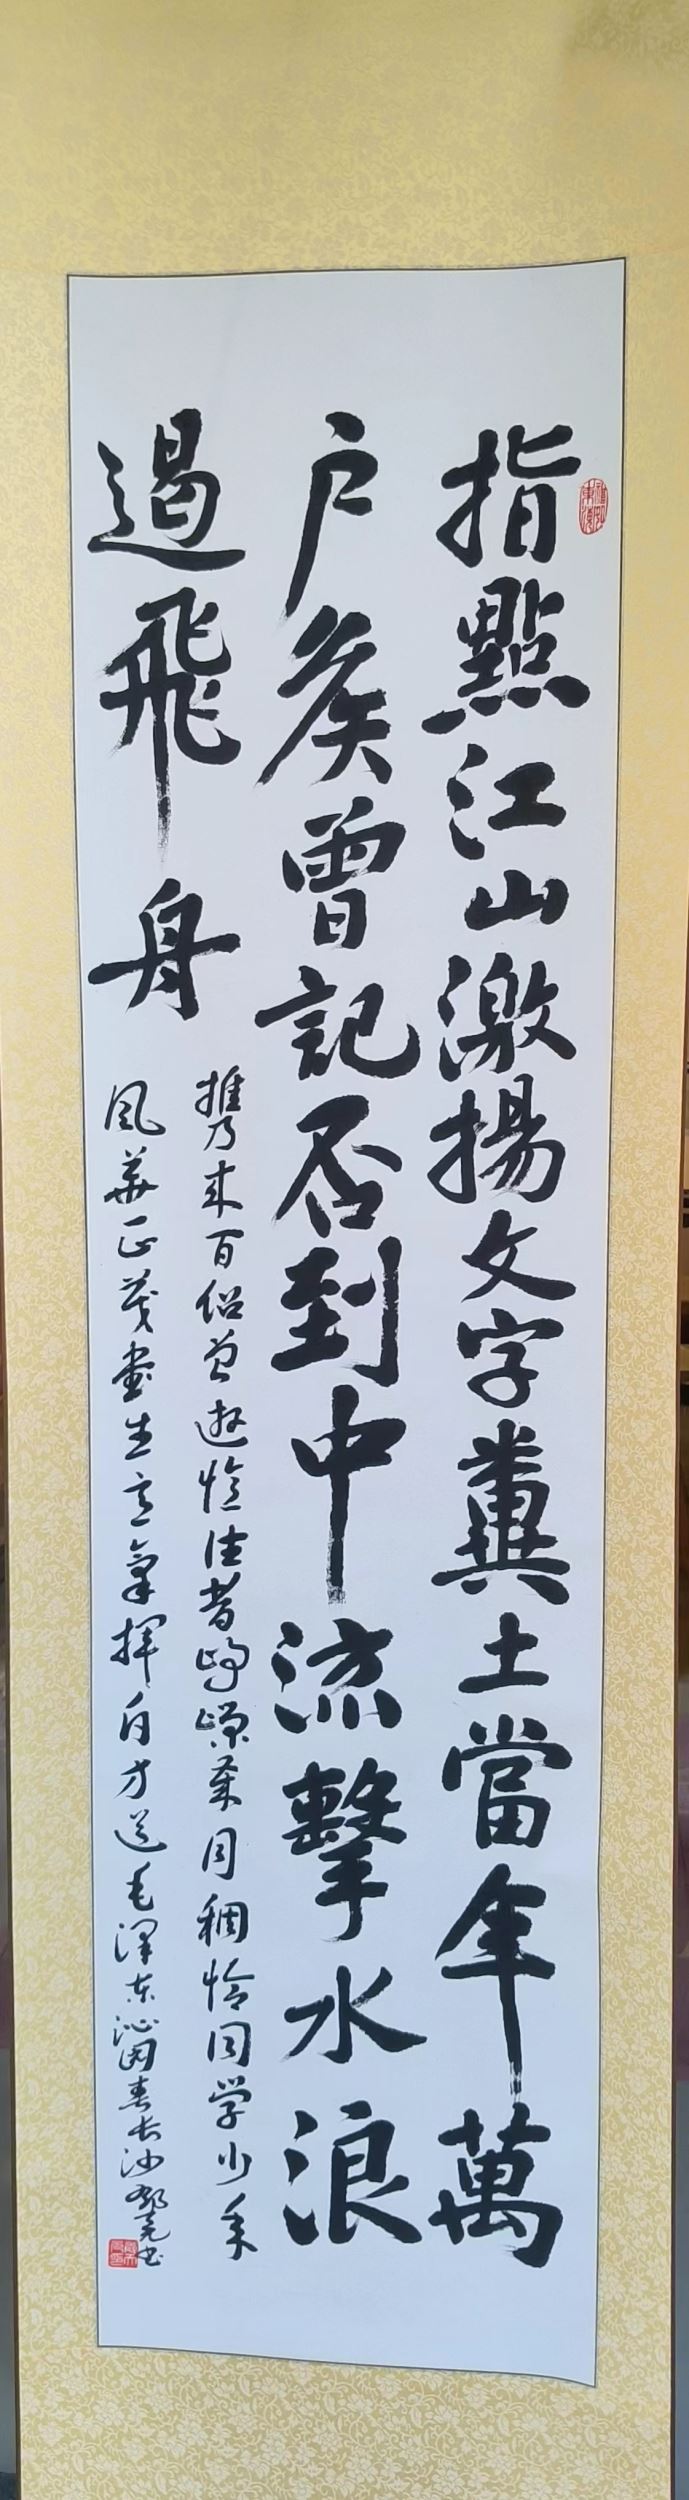 指點江山激揚文字糞土當年萬
户矦曾記否到中流擊水浪
遏飛舟
携乃来百侣曾遊憶往昔崢嶸歲月稠恰同学少年
風華正茂書生意氣揮斥方遒毛澤东沁园春长沙